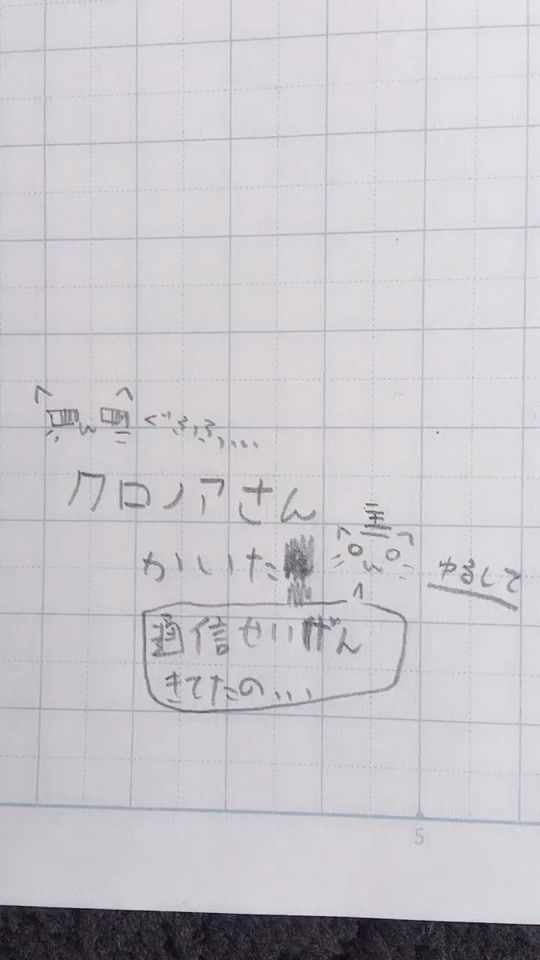 ぐぅぅ,...
クロノアさん
かいた
ゆるして
通信せいげん
きてたの...
5